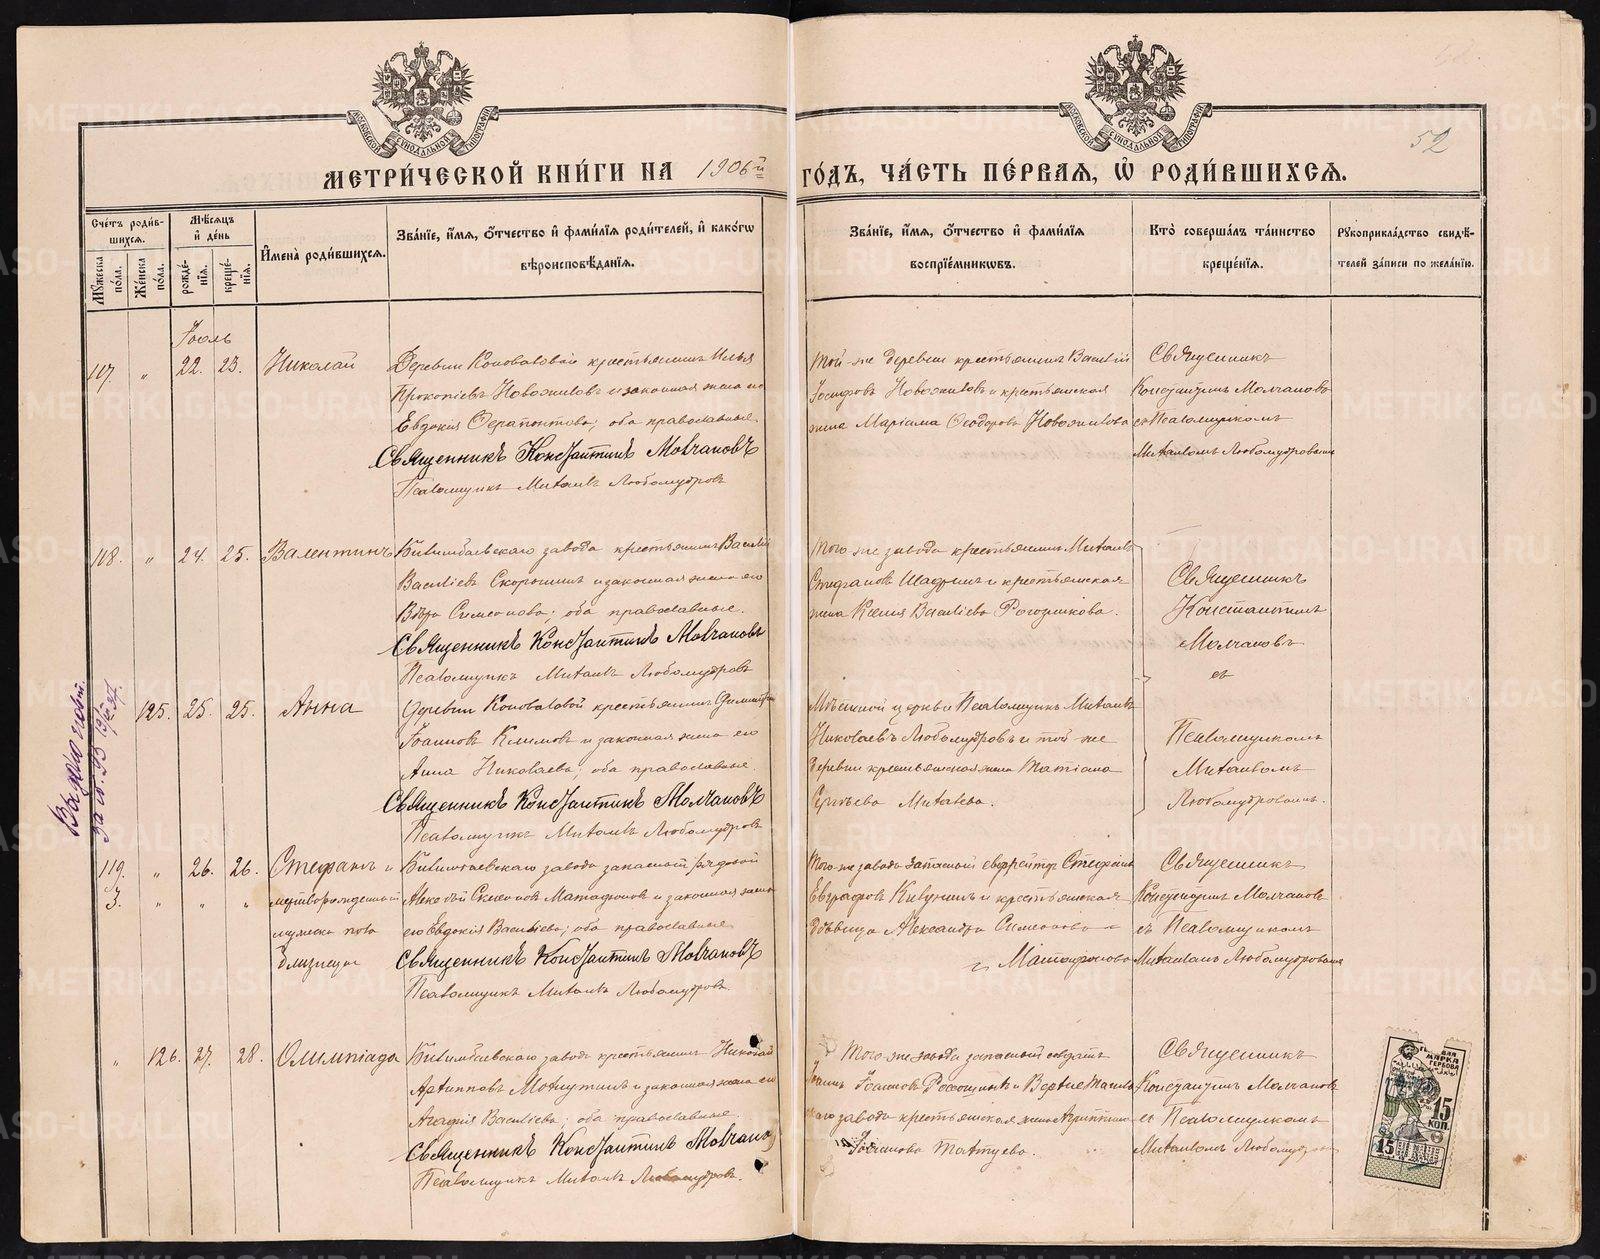 52
МОСКОВСКОЙ СѴНОДАЛЬНОЙ ТИПОГРАФІИ
МОСКОВСКОЙ СѴНОДАЛЬНОЙ ТИПОГРАФІИ
МЕТРИ́ЧЕСКОЙ КНИ́ГИ НА 1906й ГО́ДЪ, ЧА́СТЬ ПЕ́РВАѦ, Ѡ҆ РОДИ́ВШИХСѦ.
Сче́тъ роди́в-шихсѧ.
Му́жеска по́ла.
Же́нска по́ла.
Мѣ́сѧцъ и҆ де́нь
рожде́-нїѧ.
креще́-нїѧ.
И҆мена̀ роди́вшихсѧ.
Зва́нїе, и҆́мѧ, ѻ҆́тчество и҆ фами́лїѧ роди́телей, и҆ како́гѡ
вѣроисповѣ́данїѧ.
Зва́нїе, и҆́мѧ, ѻ҆́тчество и҆ фами́лїѧ
воспрїе́мникѡвъ.
Кто̀ соверша́лъ та́инство
креще́нїѧ.
Рꙋкоприкла́дство свидѣ́-
телей за́писи по жела́нїю.
Іюль
117. „ 22. 23. Николай
Деревни Коноваловой крестьянинъ Илья
Прокопіевъ Новожиловъ и законная жена его
Евдокія Ферапонтова; оба православные.
Священникъ Константинъ Молчановъ
Псаломщикъ Михаилъ Любомудровъ
Той-же деревни крестьянинъ Василій
Іосифовъ Новожиловъ и крестьянская
жена Маріамна Ѳеодорова Новожилова
Священникъ
Константинъ Молчановъ
съ Псаломщикомъ
Михаиломъ Любомудровымъ
118. „ 24. 25. Валентинъ
Билимбаевскаго завода крестьянинъ Василій
Васильевъ Скорынинъ и законная жена его
Вѣра Симеонова; оба православные.
Священникъ Константинъ Молчановъ
Псаломщикъ Михаилъ Любомудровъ
Того-же завода крестьянинъ Михаилъ
Стефановъ Шадринъ и крестьянская
жена Ксенія Васильева Рогозникова.
Священникъ
Константинъ
Молчановъ
съ
Псаломщикомъ
Михаиломъ
Любомудровымъ.
125. 25. 25. Анна
Деревни Коноваловой крестьянинъ Димитрій
Іоанновъ Климовъ и законная жена его
Анна Николаева; оба православные.
Священникъ Константинъ Молчановъ
Псаломщикъ Михаилъ Любомудровъ
Мѣстной церкви Псаломщикъ Михаилъ
Николаевъ Любомудровъ и той-же
деревни крестьянская жена Татіана
Сергѣева Михалева.
119. „ 26. 26. Стефанъ и
3. „ „ „ мертворожденный
мужеска пола
близнецы
Билимбаевскаго завода запасный рядовой
Алексѣй Симеоновъ Матафоновъ и законная жена
его Евдокія Васильева; оба православные
Священникъ Константинъ Молчановъ
Псаломщикъ Михаилъ Любомудровъ.
Того-же завода запасный ефрейторъ Стефанъ
Евграфовъ Кивунинъ и крестьянская
дѣвица Александра Симеонова
Матафонова
Священникъ
Константинъ Молчановъ
съ Псаломщикомъ
Михаиломъ Любомудровымъ
„ 126. 27. 28. Олимпіада
Билимбаевскаго завода крестьянинъ Николай
Архипповъ Мокрушинъ и законная жена его
Агафія Васильева; оба православные.
Священникъ Константинъ Молчановъ
Псаломщикъ Михаилъ Любомудровъ.
Того-же завода запасный солдатъ
Іоаннъ Іоанновъ Россошныхъ и
завода крестьянская жена Агриппина
Іоаннова Татуева.
Священникъ
Константинъ Молчановъ
съ Псаломщикомъ
Михаиломъ Любомудровымъ
МАРКА
ГЕРБОВАЯ
15
КОП.
15
METRIKI.GASO-URAL.RU